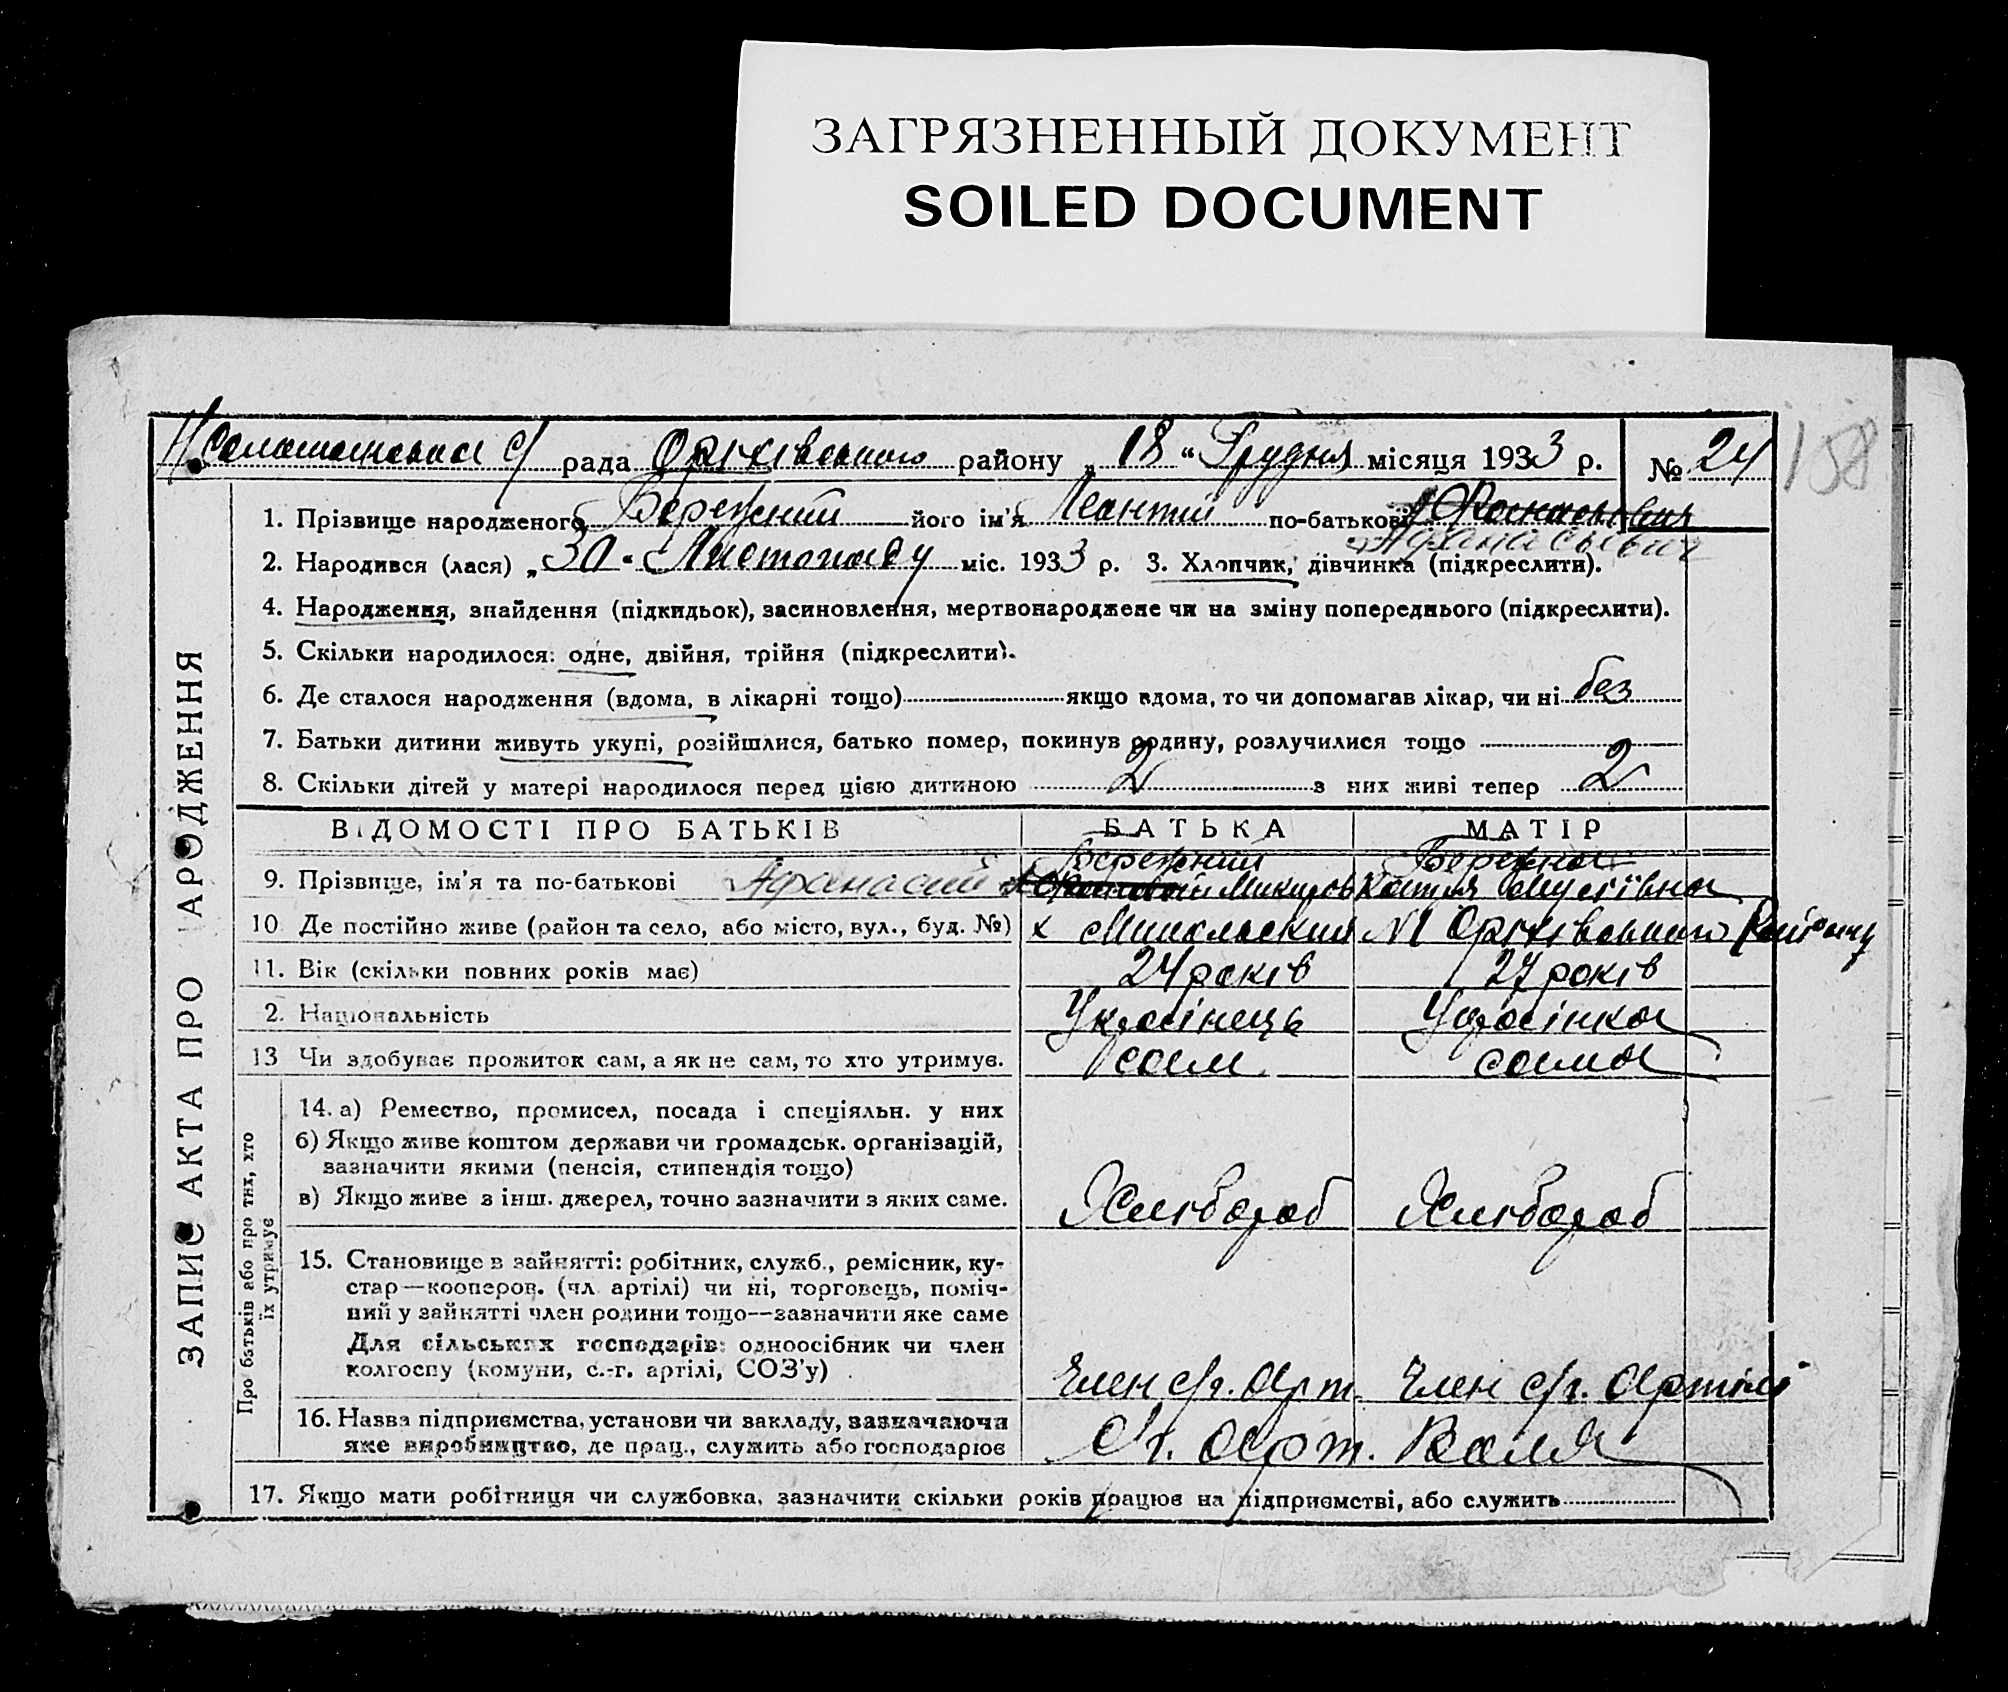 ЗАГРЯЗНЕННЫЙ ДОКУМЕНТ
SOILED DOCUMENT
с/ рада Оріхівського району „ 18 “ Грудня місяця 1933 р. № 24
158
1. Прізвище народженого Бережний його ім’я Леантій по-батькові Афанасьевич
Афанасьевич
2. Народився (лася) „ 30 “ Листопаду міс. 1933 р. 3. Хлопчик, дівчинка (підкреслити).
4. Народження, знайдення (підкидьок), засиновлення, мертвонароджене чи на зміну попереднього (підкреслити).
5. Скільки народилося: одне, двійня, трійня (підкреслити).
6. Де сталося народження (вдома, в лікарні тощо) якщо вдома, то чи допомагав лікар, чи ні без
7. Батьки дитини живуть укупі, розійшлися, батько помер, покинув родину, розлучилися тощо
8. Скільки дітей у матері народилося перед цією дитиною 2 з них живі тепер 2
ЗАПИС АКТА ПРО НАРОДЖЕННЯ
ВІДОМОСТІ ПРО БАТЬКІВ БАТЬКА МАТІР
Бережний Бережна
9. Прізвище, ім’я та по-батькові Афанасий Микиров Катря Мусіївна
10 Де постійно живе (район та село, або місто, вул., буд. №) х Микольский №1 Оріхівського Району
11. Вік (скільки повних років має) 24 років 27 років
2. Національність Українець Українка
13 Чи здобуває прожиток сам, а як не сам, то хто утримує. сам сама
Про батьків або про тих, хто їх утримує
14. а) Ремество, промисел, посада і спеціяльн. у них
б) Якщо живе коштом держави чи громадськ. організацій,
зазначити якими (пенсія, стипендія тощо)
в) Якщо живе з інш. джерел, точно зазначити з яких саме. Хлібороб Хлібороб
15. Становище в зайнятті: робітник, служб., ремісник, ку-
стар—кооперов. (чл. артілі) чи ні, торговець, поміч-
ний у зайнятті член родини тощо—зазначити яке саме
Для сільських господарів: одноосібник чи член
колгоспу (комуни, с.-г. артілі, СОЗ’у) Член с/г. Арт. Член с/г. Артілі
16. Назва підприємства, установи чи закладу, зазначаючи
яке виробництво, де прац., служить або господарює С/г. Арт. Воля
17. Якщо мати робітниця чи службовка, зазначити скільки років працює на підприємстві, або служить